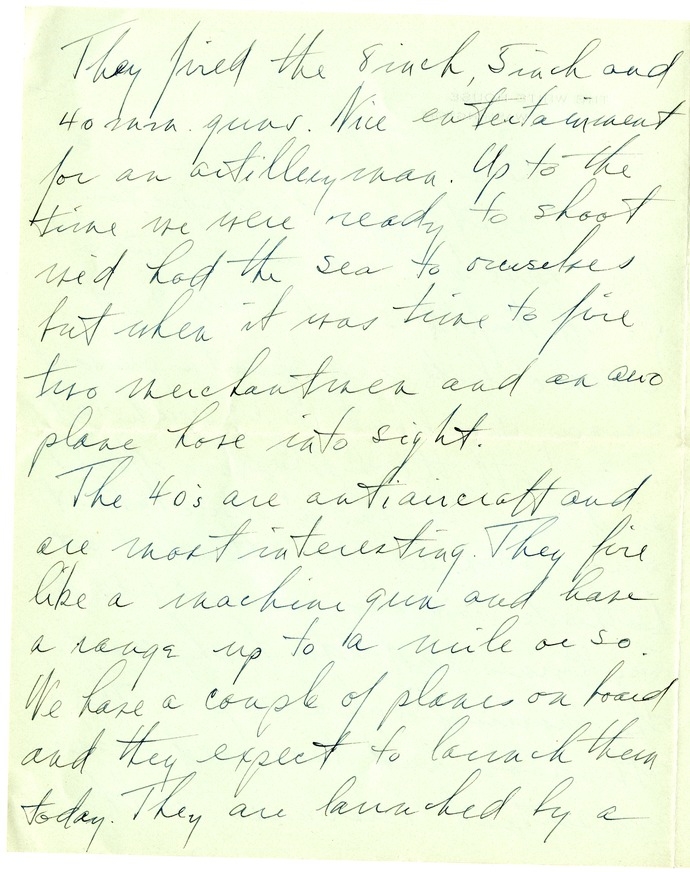 They fired the 8 inch, 5 inch and
40 mm. guns. Nice entertainment
for an artilleryman. Up to the
time we were ready to shoot
we'd had the sea to ourselves
but when it was time to fire
two merchantmen and an
plane hove into sight.
The 40's are antiaircraft and
are most interesting. They fire
like a machine gun and have
a range up to a mile or so.
We have a couple of planes on board
and they expect to launch them
today. They are launched by a